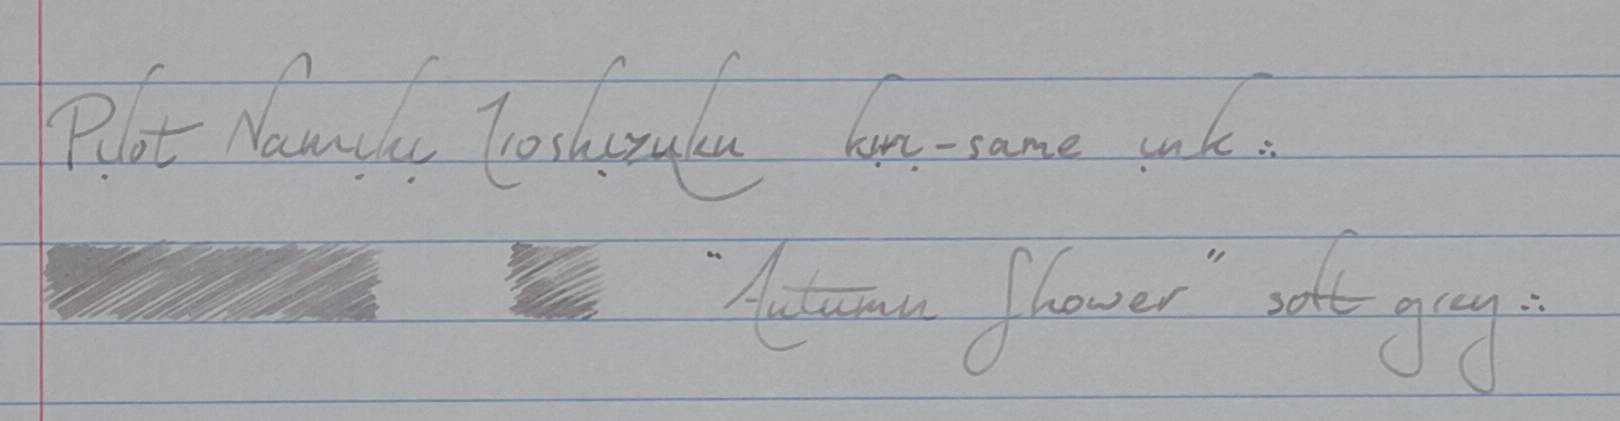 Pilot Namiki Iroshizuku kiri-same ink ∴
"Autumn Shower" soft grey ∴